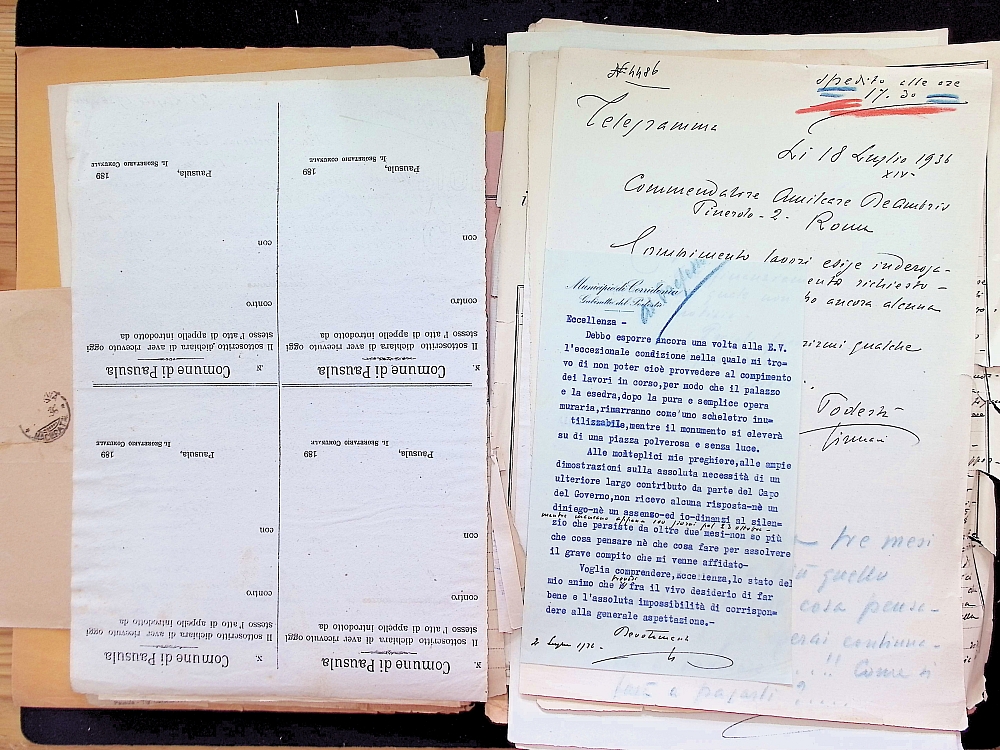 Comune di Pausula
N.
Il sottoscritto dichiara di aver ricevuto oggi
stesso l'atto di appello introdotto da
contro
con
Pausula, 189
Il Segretario Comunale
Comune di Pausula
N.
Il sottoscritto dichiara di aver ricevuto oggi
stesso l'atto di appello introdotto da
contro
con
Pausula, 189
Il Segretario Comunale
Comune di Pausula
N.
Il sottoscritto dichiara di aver ricevuto oggi
stesso l'atto di appello introdotto da
contro
con
Pausula, 189
Il Segretario Comunale
Comune di Pausula
N.
Il sottoscritto dichiara di aver ricevuto oggi
stesso l'atto di appello introdotto da
contro
con
Pausula, 189
Il Segretario Comunale
N. 4486
spedito alle ore
17.30
Telegramma
Li 18 Luglio 1936
XIV-
Commendatore Amilcare DeAmbris
Pinerolo-2- Roma
Compimento lavori esige inderoga-
ento richiesto-
ho ancora alcuna
qualche
Podestà
Firmani
Municipio di Corridonia
Gabinetto del Podestà
Eccellenza -
Debbo esporre ancora una volta alla E.V.
l'eccezionale condizione nella quale mi tro=
vo di non poter cioè provvedere al compimento
dei lavori in corso,per modo che il palazzo
e la esedra,dopo la pure e semplice opera
muraria,rimarranno come'uno scheletro inu=
tilizzabile,mentre il monumento si eleverà
su di una piazza polverosa e senza luce.
Alle molteplici mie preghiere,alle ampie
dimostrazioni sulla assoluta necessità di un
ulteriore largo contributo da parte del Capo
del Governo,non ricevo alcuna risposta-nè un
diniego-nè un assenso-ed io-dinanzi al silen=
mentre mancano appena 100 giorni pel 23 ottobre-
zio che persiste da oltre due mesi-non so più
che cosa pensare nè che cosa fare per assolvere
il grave compito che mi venne affidato-
Voglia comprendere,Eccellenza,lo stato del
mio animo che fra il vivo desiderio di far
bene e l'assoluta impossibilità di corrispon=
dere alla generale aspettazione.-
Devotamente
2 Luglio 1936-
tre mesi
quello
cosa pensa-
continua-
..!! Come si
farà a pagarli?.....